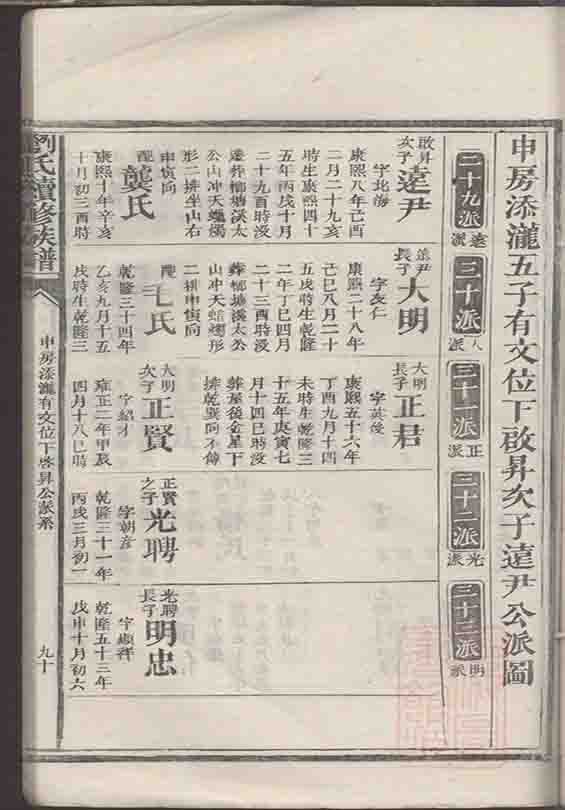 申房添瀧五子有文位下啟昇次子遠尹公派圖
二十九派
遠派
三十派
大派
三十一派
正派
三十二派
光派
三十三派
明派
啟昇
次子
遠尹
字北海
康熙八年己酉
二月二十九亥
時生康熙四十
五年丙戌十月
二十九酉時沒
塟炸榔塘溪太
公山冲天蠟燭
形二排坐山右
申寅向
配
龔氏
康熙十年辛亥
十月初三酉時
遠尹
長子
大明
字友仁
康熙二十八年
己巳八月二十
五戌時生乾隆
二年丁巳四月
二十三酉時沒
葬榔塘溪太公
山冲天蠟燭形
二排申寅向
配
毛氏
乾隆三十四年
乙亥九月十五
戌時生乾隆三
大明
長子
正君
字英俊
康熙五十六年
丁酉九月十四
未時生乾隆三
十五年庚寅七
月十四巳時沒
葬屋後金星下
排乾巽向不傳
大明
次子
正賢
字紹才
雍正二年甲辰
四月十八巳時
正賢
之子
光聘
字朝彥
乾隆三十一年
丙戌三月初一
光聘
長子
明忠
字顯祥
乾隆五十三年
戊申十月初六
劉氏續修族譜
申房添瀧有文位下啓昇公派系
九十